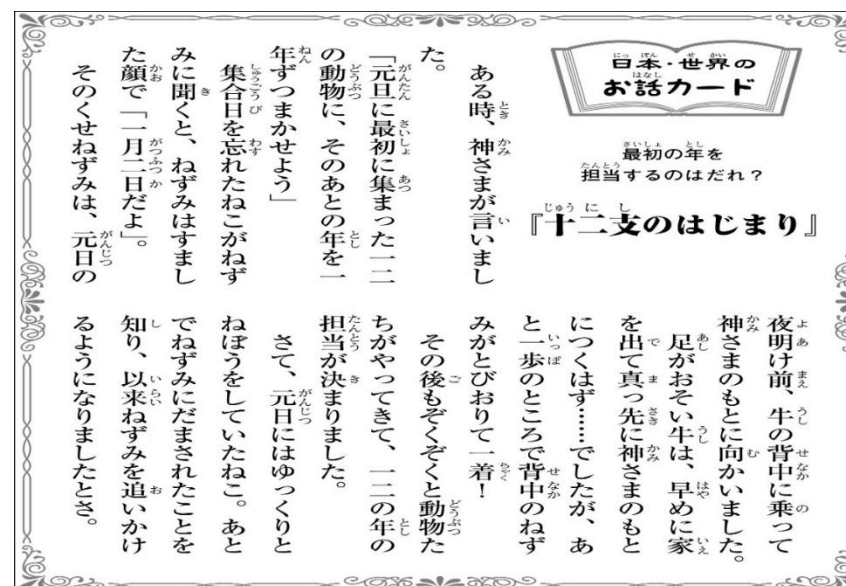 日本・世界の
お話カード
最初の年を
担当するのはだれ？
『十二支のはじまり』
ある時、神さまが言いまし
た。
「元旦に最初に集まった一二
の動物に、そのあとの年を一
年ずつまかせよう」
集合日を忘れたねこがねず
みに聞くと、ねずみはすまし
た顔で「一月二日だよ」。
そのくせねずみは、元日の
夜明け前、牛の背中に乗って
神さまのもとに向かいました。
足がおそい牛は、早めに家
を出て真っ先に神さまのもと
につくはず……でしたが、あ
と一歩のところで背中のねず
みがとびおりて一着！
その後もぞくぞくと動物た
ちがやってきて、一二の年の
担当が決まりました。
さて、元日にはゆっくりと
ねぼうをしていたねこ。あと
でねずみにだまされたことを
知り、以来ねずみを追いかけ
るようになりましたとさ。